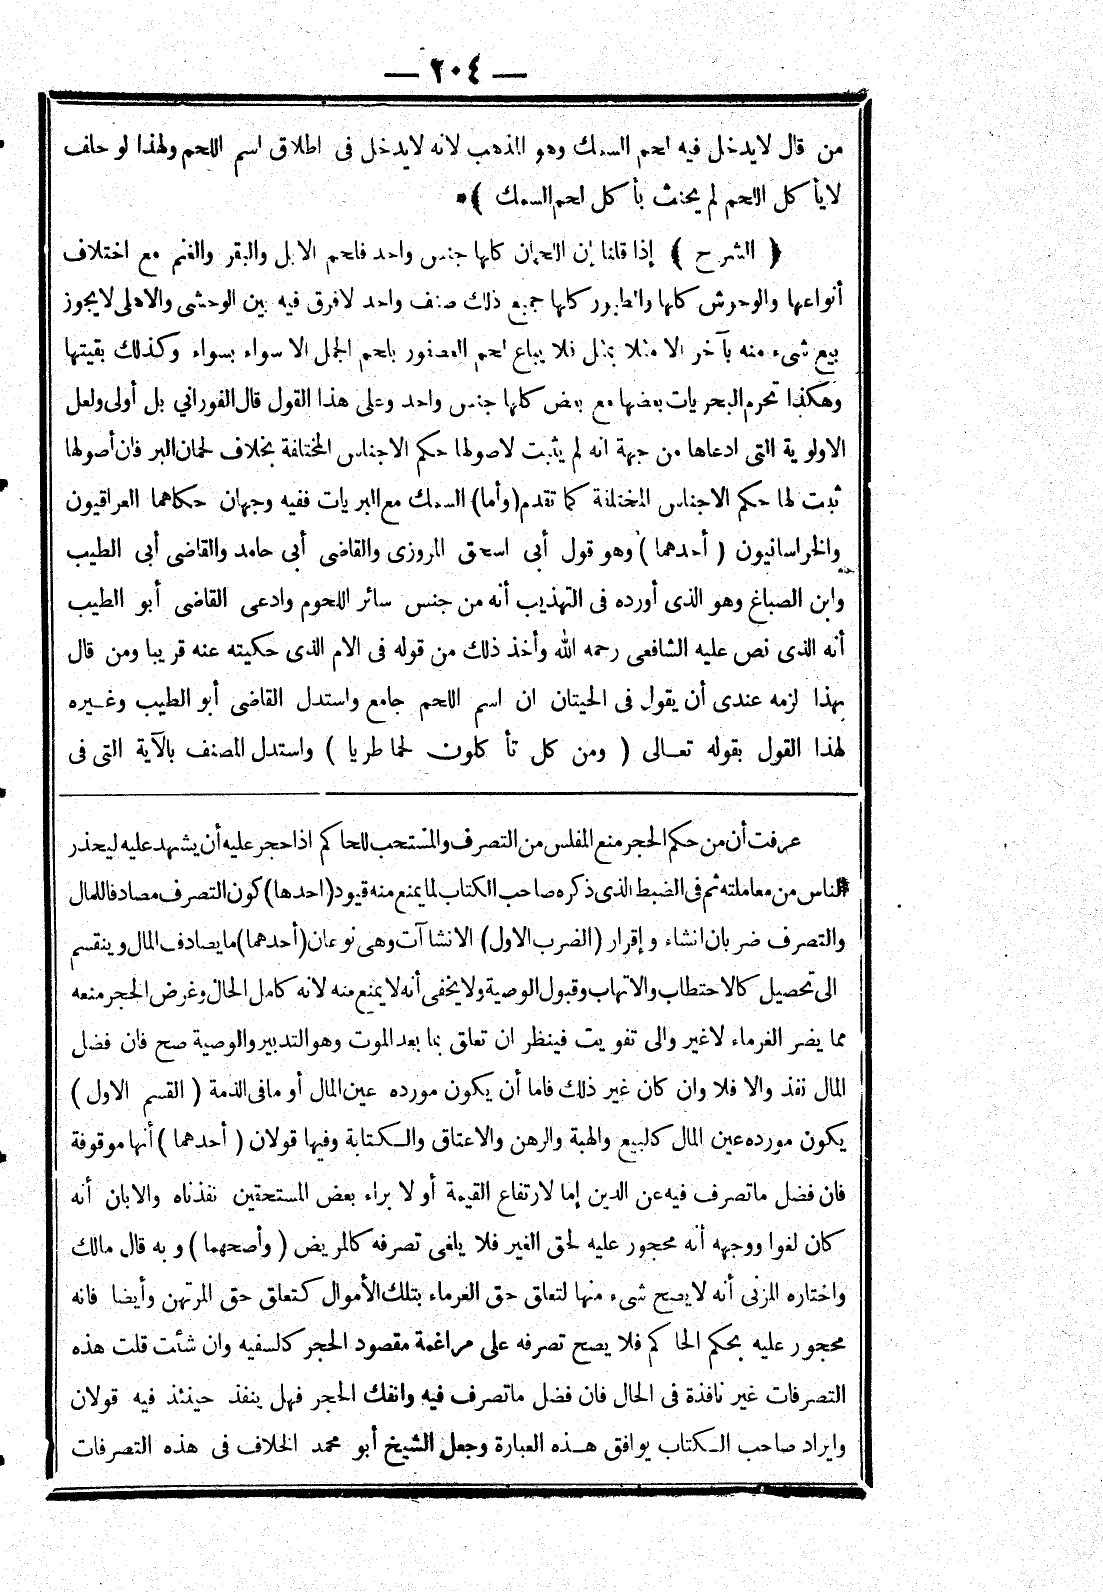 — ٢٠٤ —
من قال لا يدخل فيه لحم السمك وهو المذهب لانه لا يدخل فى اطلاق اسم اللحم ولهذا لو حلف
لا يأكل اللحم لم يحنث بأكل لحم السمك ﴾ *
﴿ الشرح ﴾ إذا قلنا إن اللحمان كلها جنس واحد فلحم الابل والبقر والغنم مع اختلاف
أنواعها والوحوش كلها والطيور كلها جميع ذلك صنف واحد لا فرق فيه بين الوحشى والاهلى لا يجوز
بيع شىء منه بآخر الا مثلا بمثل فلا يباع لحم العصفور بلحم الجمل الا سواء بسواء وكذلك بقيتها
وهكذا تحرم البحريات بعضها مع بعض كلها جنس واحد وعلى هذا القول قال الفوراني بل أولى ولعل
الاولوية التى ادعاها من جهة انه لم يثبت لاصولها حكم الاجناس المختلفة بخلاف لحمان البر فان أصولها
ثبت لها حكم الاجناس المختلفة كما تقدم (وأما) السمك مع البريات ففيه وجهان حكاهما العراقيون
والخراسانيون ( أحدهما ) وهو قول أبى اسحق المروزى والقاضى أبى حامد والقاضى أبى الطيب
وابن الصباغ وهو الذى أورده فى التهذيب أنه من جنس سائر اللحوم وادعى القاضى أبو الطيب
أنه الذى نص عليه الشافعى رحمه الله وأخذ ذلك من قوله فى الام الذى حكيته عنه قريبا ومن قال
بهذا لزمه عندى أن يقول فى الحيتان ان اسم اللحم جامع واستدل القاضى أبو الطيب وغيره
لهذا القول بقوله تعالى ( ومن كل تأكلون لحما طريا ) واستدل المصنف بالآية التى فى
عرفت أن من حكم الحجر منع المفلس من التصرف والمستحب للحاكم اذا حجر عليه أن يشهد عليه ليحذر
الناس من معاملته ثم فى الضبط الذى ذكره صاحب الكتاب لما يمنع منه قيود (احدها) كون التصرف مصادفا للمال
والتصرف ضربان انشاء وإقرار (الضرب الاول) الانشاآت وهى نوعان (أحدهما) ما يصادف المال وينقسم
الى تحصيل كالاحتطاب والاتهاب وقبول الوصية ولا يخفى أنه لا يمنع منه لانه كامل الحال وغرض الحجر منعه
مما يضر الغرماء لا غير والى تفويت فينظر ان تعلق بما بعد الموت وهو التدبير والوصية صح فان فضل
المال نفذ والا فلا وان كان غير ذلك فاما أن يكون مورده عين المال أو ما فى الذمة ( القسم الاول )
يكون مورده عين المال كالبيع والهبة والرهن والاعتاق والكتابة وفيها قولان ( أحدهما ) أنها موقوفة
فان فضل ما تصرف فيه عن الدين إما لارتفاع القيمة أو لا براء بعض المستحقين نفذناه والا بان أنه
كان لغوا ووجهه أنه محجور عليه لحق الغير فلا يلغى تصرفه كالمريض ( وأصحهما ) وبه قال مالك
واختاره المزنى أنه لا يصح شىء منها لتعلق حق الغرماء بتلك الأموال كتعلق حق المرتهن وأيضا فانه
محجور عليه بحكم الحاكم فلا يصح تصرفه على مراغمة مقصود الحجر كالسفيه وان شئت قلت هذه
التصرفات غير نافذة فى الحال فان فضل ما تصرف فيه وانفك الحجر فهل ينفذ حينئذ فيه قولان
وايراد صاحب الكتاب يوافق هذه العبارة وجعل الشيخ أبو محمد الخلاف فى هذه التصرفات